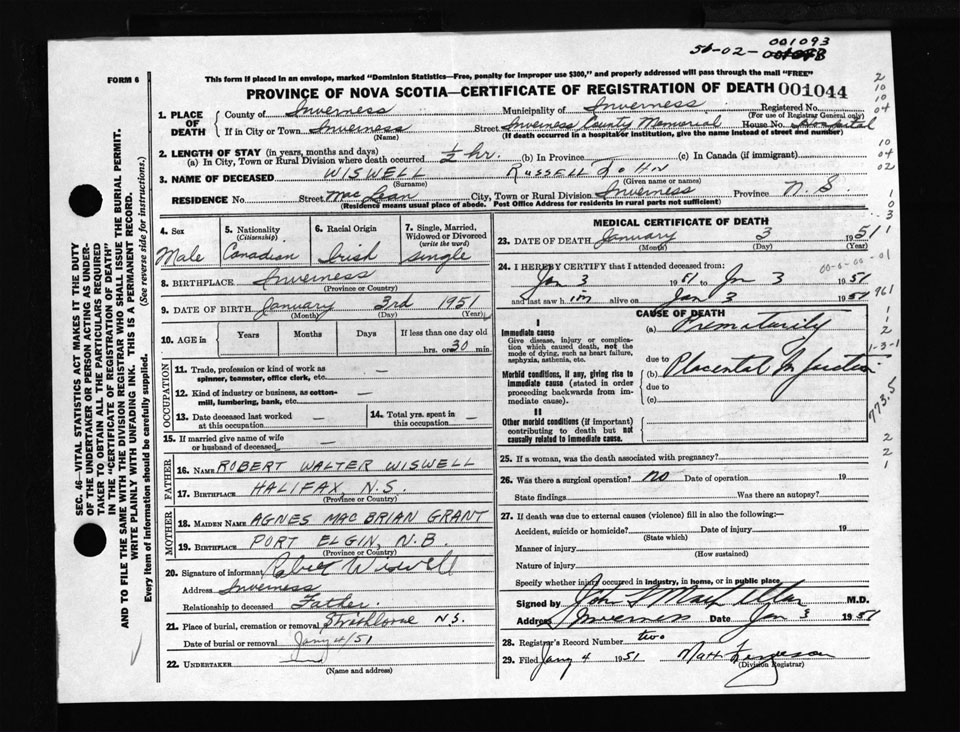 001093
51-02-
FORM 6
This form if placed in an envelope, marked "Dominion Statistics—Free, penalty for improper use $300," and properly addressed will pass through the mail "FREE"
PROVINCE OF NOVA SCOTIA—CERTIFICATE OF REGISTRATION OF DEATH 001044
1. PLACE OF DEATH
County of Inverness Municipality of Inverness Registered No.
(For use of Registrar General only)
If in City or Town Inverness Street Inverness County Memorial House No. Hospital
(Name) (If death occurred in a hospital or institution, give the name instead of street and number)
2. LENGTH OF STAY (in years, months and days)
(a) In City, Town or Rural Division where death occurred ½ hr. (b) In Province (c) In Canada (if immigrant)
3. NAME OF DECEASED WISWELL RUSSELL JOHN
(Surname) (Given name or names)
RESIDENCE No. Street Mac Lean City, Town or Rural Division Inverness Province N. S.
(Residence means usual place of abode. Post Office Address for residents in rural parts not sufficient)
4. Sex
Male
5. Nationality
(Citizenship)
Canadian
6. Racial Origin
Irish
7. Single, Married, Widowed or Divorced
(write the word)
single
8. BIRTHPLACE Inverness
(Province or Country)
9. DATE OF BIRTH January 3rd 1951
(Month) (Day) (Year)
10. AGE in Years Months Days If less than one day old
hrs. or 30 min.
OCCUPATION
11. Trade, profession or kind of work as spinner, teamster, office clerk, etc. —
12. Kind of industry or business, as cotton-mill, lumbering, bank, etc. —
13. Date deceased last worked at this occupation —
14. Total yrs. spent in this occupation —
15. If married give name of wife or husband of deceased —
FATHER
16. NAME ROBERT WALTER WISWELL
17. BIRTHPLACE HALIFAX, N.S.
(Province or Country)
MOTHER
18. MAIDEN NAME AGNES MAC BRIAN GRANT
19. BIRTHPLACE PORT ELGIN, N.B.
(Province or Country)
20. Signature of informant Robert Wiswell
Address Inverness
Relationship to deceased Father
21. Place of burial, cremation or removal Strathlorne N.S.
Date of burial or removal Jany 4/51
22. UNDERTAKER
(Name and address)
MEDICAL CERTIFICATE OF DEATH
23. DATE OF DEATH January 3 1951
(Month) (Day) (Year)
24. I HEREBY CERTIFY that I attended deceased from:
Jan 3 1951 to Jan 3 1951
and last saw him alive on Jan 3 1951
CAUSE OF DEATH
I
Immediate cause (a) Prematurity
Give disease, injury or complication which caused death, not the mode of dying, such as heart failure, asphyxia, asthenia, etc.
due to
Morbid conditions, if any, giving rise to immediate cause (stated in order proceeding backwards from immediate cause).
(b) Placental Infarction
due to
(c)
II
Other morbid conditions (if important) contributing to death but not causally related to immediate cause.
25. If a woman, was the death associated with pregnancy?
26. Was there a surgical operation? no Date of operation 19
State findings Was there an autopsy?
27. If death was due to external causes (violence) fill in also the following:—
Accident, suicide or homicide? Date of injury 19
(State which)
Manner of injury
(How sustained)
Nature of injury
Specify whether injury occurred in industry, in home, or in public place
Signed by M.D.
Address Inverness Date Jan 3 1951
28. Registrar's Record Number two
29. Filed Jany 4 1951 Matt Ferguson
(Division Registrar)
SEC. 46—VITAL STATISTICS ACT MAKES IT THE DUTY
OF THE UNDERTAKER OR PERSON ACTING AS UNDER-
TAKER TO OBTAIN ALL THE PARTICULARS REQUIRED
IN THE "CERTIFICATE OF REGISTRATION OF DEATH"
AND TO FILE THE SAME WITH THE DIVISION REGISTRAR WHO SHALL ISSUE THE BURIAL PERMIT.
WRITE PLAINLY WITH UNFADING INK. THIS IS A PERMANENT RECORD.
Every item of information should be carefully supplied. (See reverse side for instructions.)
2
10
10
04
10
04
02
1
0
3
1
961
1
1
2
1-3-1
773.5
2
2
1